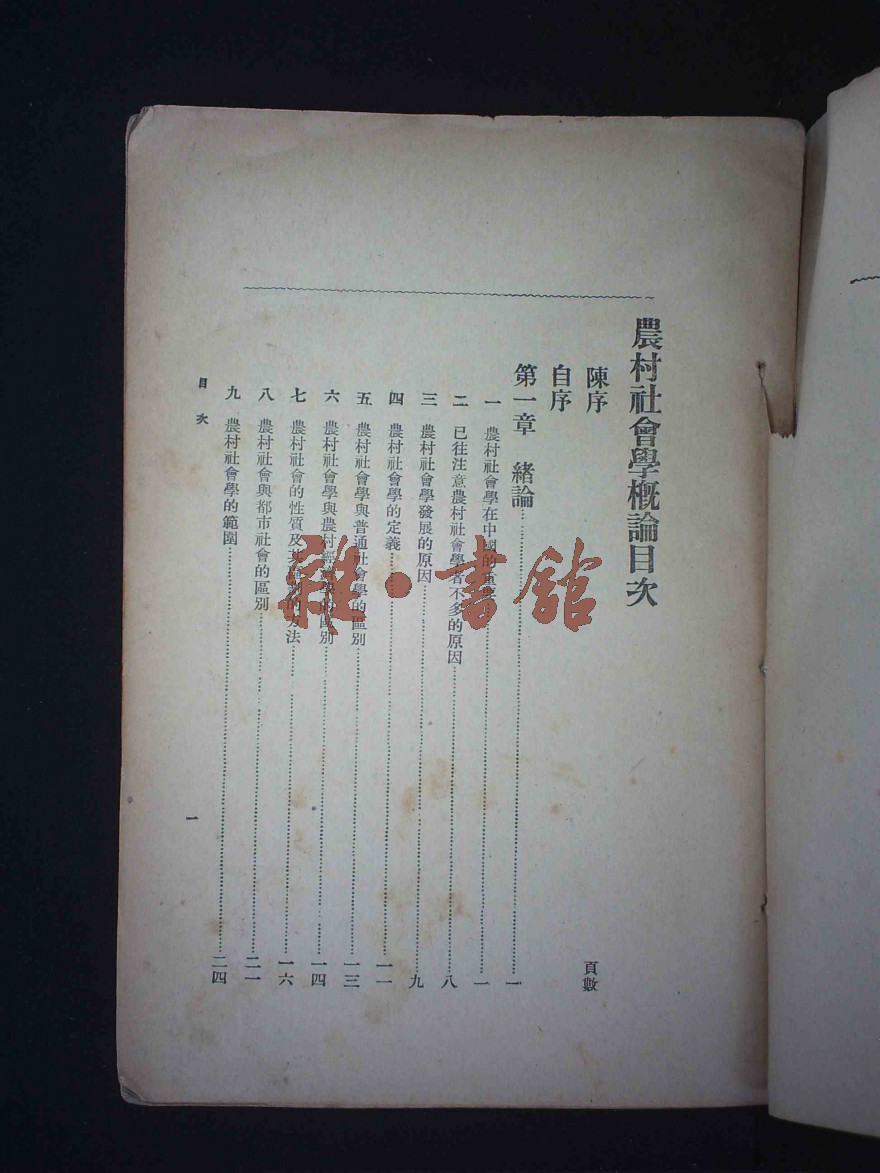 農村社會學概論目次
頁數
陳序
自序
第一章 緒論 一
一 農村社會學在中國的重要 一
二 已往注意農村社會學者不多的原因 八
三 農村社會學發展的原因 九
四 農村社會學的定義 一一
五 農村社會學與普通社會學的區別 一三
六 農村社會學與農村經濟學的區別 一四
七 農村社會的性質及其 的方法 一六
八 農村社會與都市社會的區別 二一
九 農村社會學的範圍 二四
目次
一
雜·書館